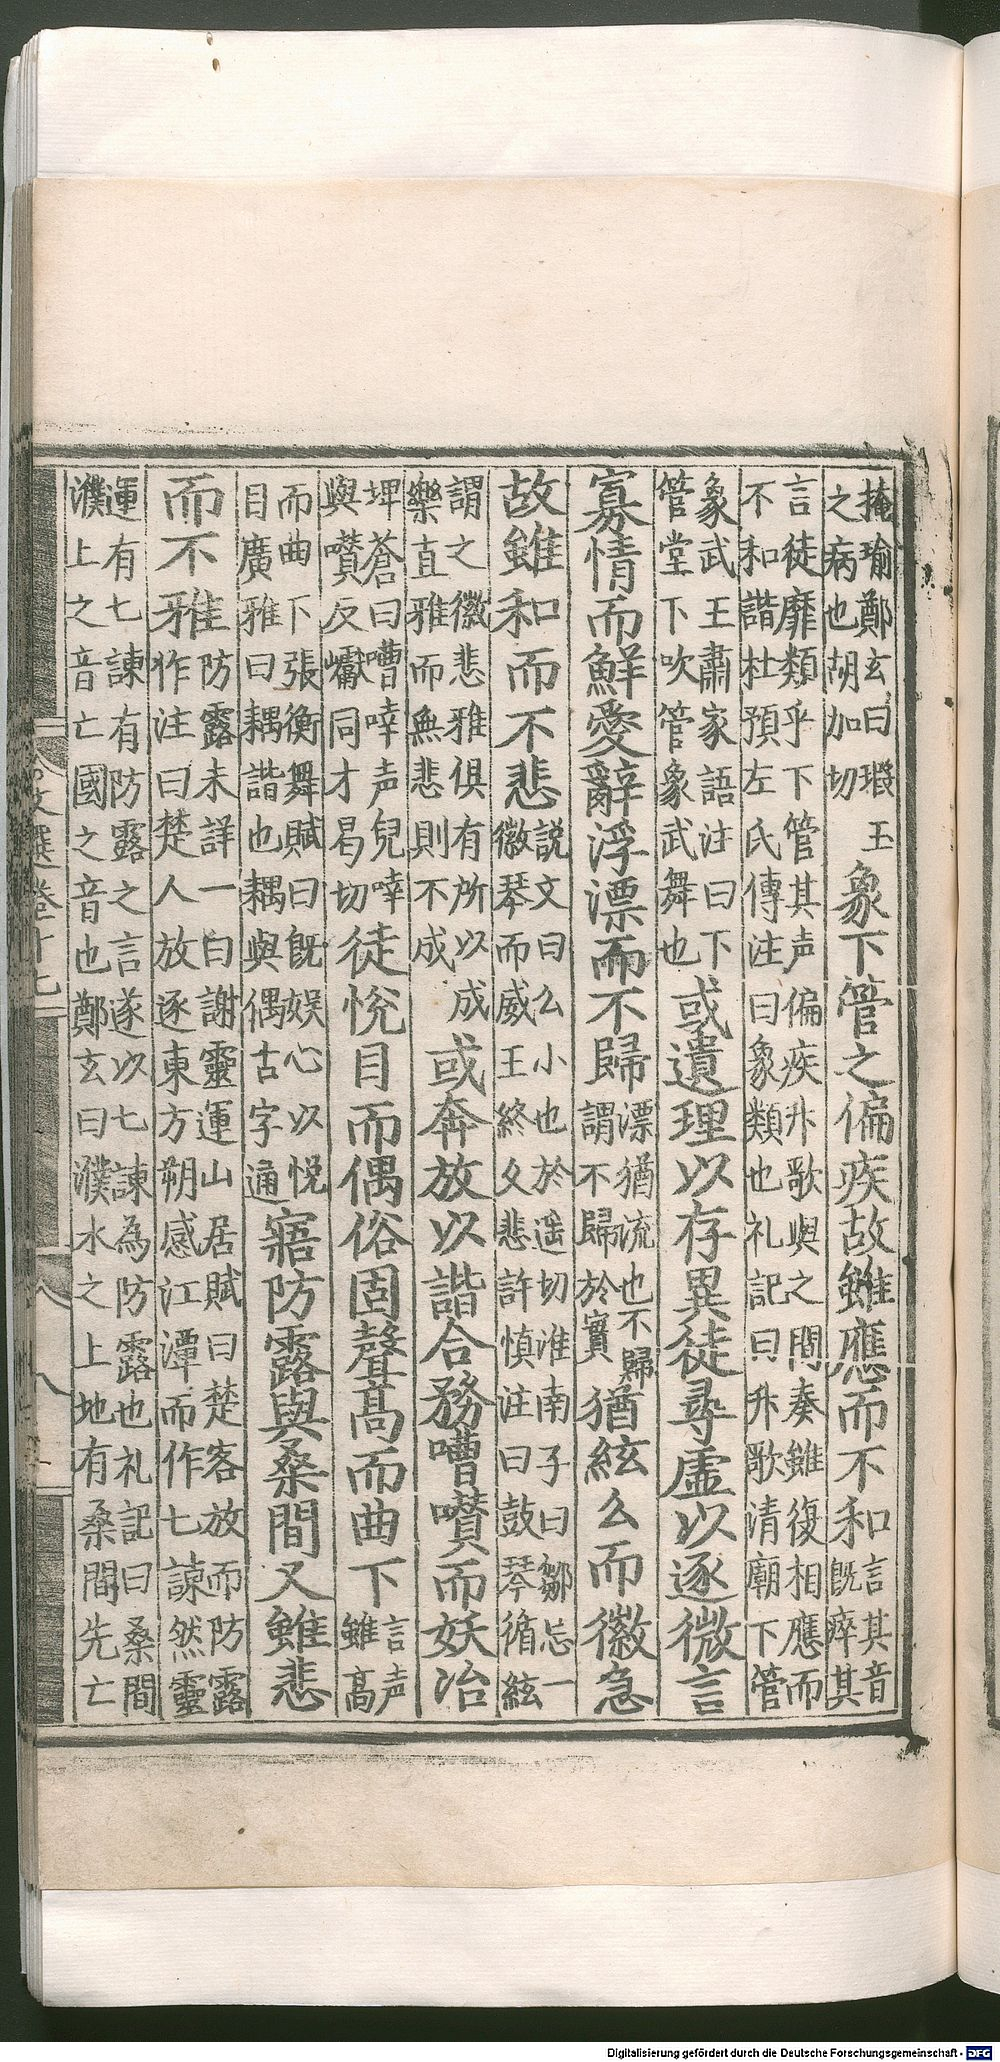 掩瑜鄭玄曰瑕玉
之病也胡加切
象下管之偏疾故雖應而不和
言其音
既瘁其
言徒靡類乎下管其声偏疾升歌與之間奏雖復相應而
不和諧杜預左氏傳注曰象類也礼記曰升歌清廟下管
象武王肅家語注曰下
管堂下吹管象武舞也
或遺理以存異徒尋虛以逐微言
寡情而鮮愛辭浮漂而不歸
漂猶流也不歸
謂不歸於實
猶絃么而徽急
故雖和而不悲
説文曰么小也於遥切淮南子曰鄒忌一
徽琴而威王終夕悲許慎注曰鼓琴循絃
謂之徽悲雅俱有所以成
樂直雅而無悲則不成
或奔放以諧合務嘈囋而妖冶
埤蒼曰嘈啐声皃啐
與囋反㘔同才曷切
徒悅目而偶俗固聲髙而曲下
言声
雖髙
而曲下張衡舞賦曰旣娱心以悦
目廣雅曰耦諧也耦與偶古字通
寤防露與桑間又雖悲
而不雅
防露未詳一曰謝靈運山居賦曰楚客放而防露
作注曰楚人放逐東方朔感江潭而作七諫然靈
運有七諫有防露之言遂以七諫為防露也礼記曰桑間
濮上之音亡國之音也鄭玄曰濮水之上地有桑間先亡
文選卷十七
Digitalisierung gefördert durch die Deutsche Forschungsgemeinschaft - DFG